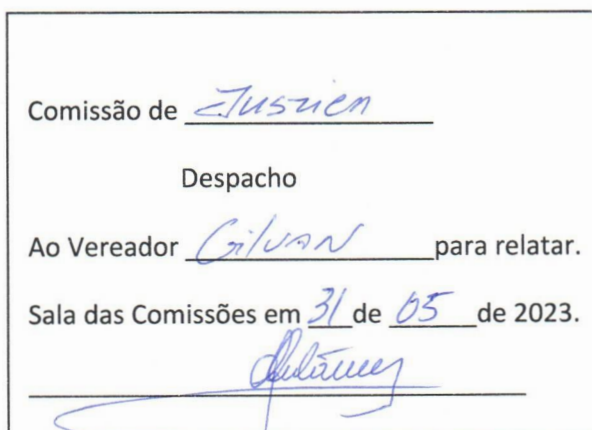 Comissão de Justiça
Despacho
Ao Vereador Gilvan para relatar.
Sala das Comissões em 31 de 05 de 2023.